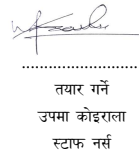 ........................
तयार गर्ने
उपमा कोइराला
स्टाफ नर्स